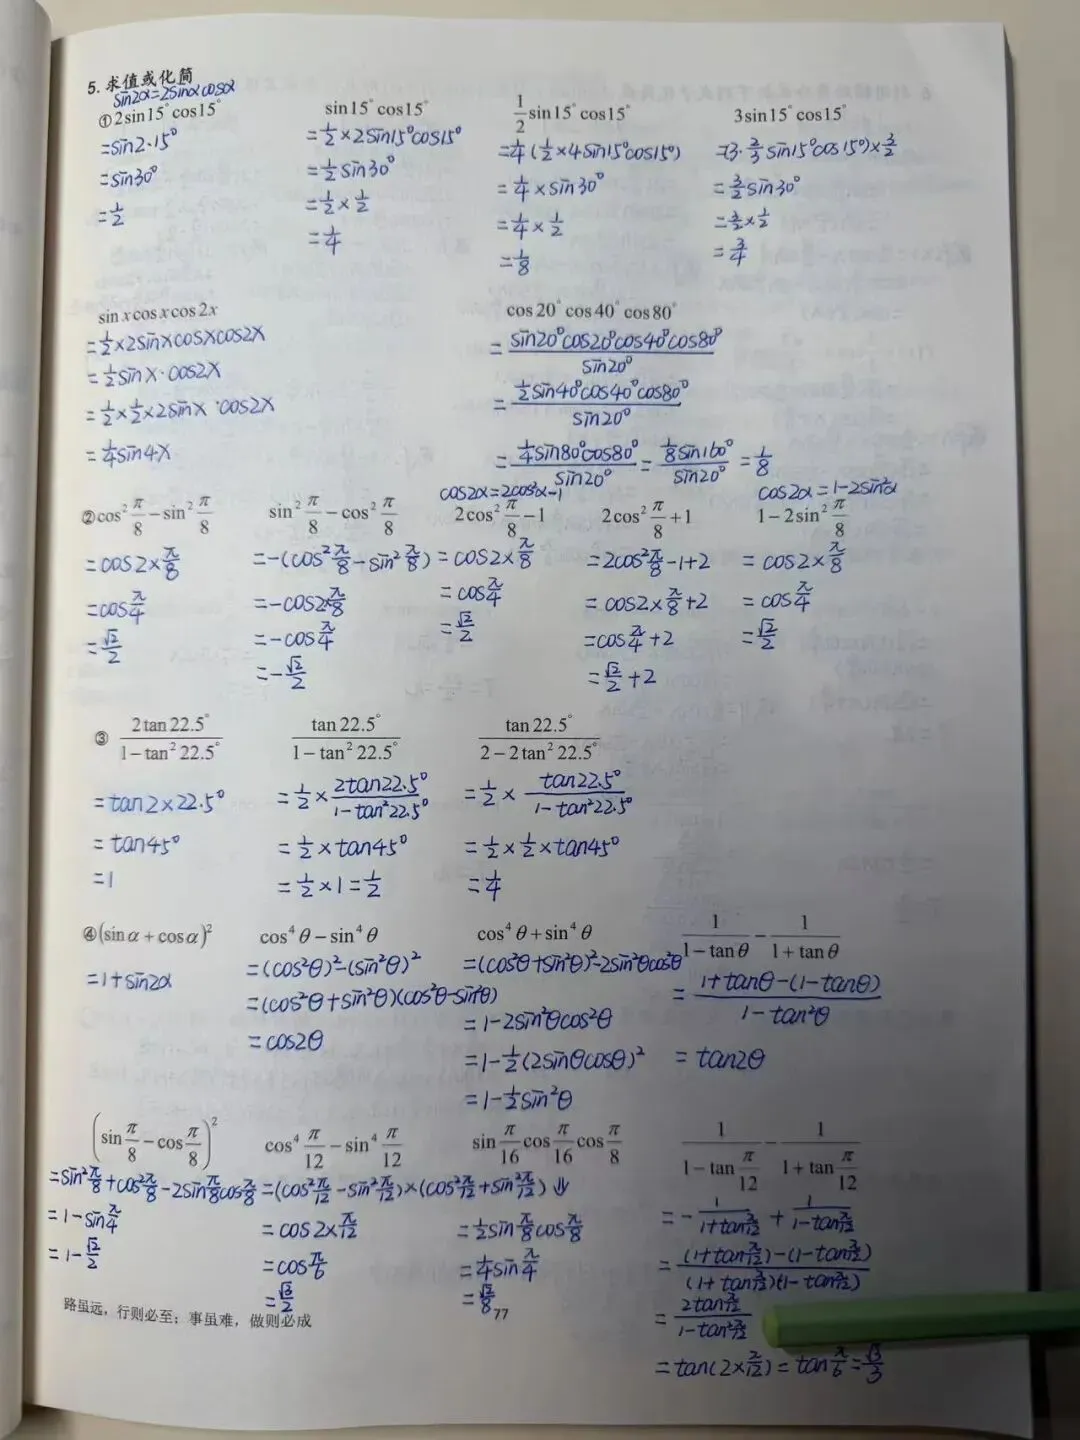 5. 求值或化简
sin2α=2sinαcosα
①2sin15°cos15°
=sin2·15°
=sin30°
=1/2
sin15°cos15°
=1/2×2sin15°cos15°
=1/2sin30°
=1/2×1/2
=1/4
1/2 sin15°cos15°
=1/4(1/2×4sin15°cos15°)
=1/4×sin30°
=1/4×1/2
=1/8
3sin15°cos15°
=(3·2/3sin15°cos15°)×3/2
=3/2sin30°
=3/2×1/2
=3/4
sin x cos x cos 2x
=1/2×2sinxcosxcos2x
=1/2sinx·cos2x
=1/2×1/2×2sinx·cos2x
=1/4sin4x
cos20°cos40°cos80°
=sin20°cos20°cos40°cos80°/sin20°
=1/2sin40°cos40°cos80°/sin20°
=1/4sin80°cos80°/sin20°=1/8sin160°/sin20°=1/8
②cos²π/8−sin²π/8
=cos2×π/8
=cosπ/4
=√2/2
sin²π/8−cos²π/8
=-(cos²π/8-sin²π/8)
=-cos2π/8
=-cosπ/4
=-√2/2
cos2α=2cos²α-1
2cos²π/8−1
=cos2×π/8
=cosπ/4
=√2/2
2cos²π/8+1
=2cos²π/8-1+2
=cos2×π/8+2
=cosπ/4+2
=√2/2+2
cos2α=1-2sin²α
1−2sin²π/8
=cos2×π/8
=cosπ/4
=√2/2
③ 2tan22.5°/(1−tan²22.5°)
=tan2×22.5°
=tan45°
=1
tan22.5°/(1−tan²22.5°)
=1/2×2tan22.5°/(1-tan²22.5°)
=1/2×tan45°
=1/2×1=1/2
tan22.5°/(2−2tan²22.5°)
=1/2×tan22.5°/(1-tan²22.5°)
=1/2×1/2×tan45°
=1/4
④(sinα+cosα)²
=1+sin2α
cos⁴θ−sin⁴θ
=(cos²θ)²-(sin²θ)²
=(cos²θ+sin²θ)(cos²θ-sin²θ)
=cos2θ
cos⁴θ+sin⁴θ
=(cos²θ+sin²θ)²-2sin²θcos²θ
=1-2sin²θcos²θ
=1-1/2(2sinθcosθ)²
=1-1/2sin²θ
1/(1−tanθ)−1/(1+tanθ)
=(1+tanθ-(1-tanθ))/(1-tan²θ)
=tan2θ
(sinπ/8−cosπ/8)²
=sin²π/8+cos²π/8-2sinπ/8cosπ/8
=1-sinπ/4
=1-√2/2
cos⁴π/12−sin⁴π/12
=(cos²π/12-sin²π/12)×(cos²π/12+sin²π/12)
=cos2×π/12
=cosπ/6
=√3/2
sinπ/16cosπ/16cosπ/8
↓
=1/2sinπ/8cosπ/8
=1/4sinπ/4
=√2/8
1/(1−tanπ/12)−1/(1+tanπ/12)
=-1/(1+tanπ/12)+1/(1-tanπ/12)
=((1+tanπ/12)-(1-tanπ/12))/((1+tanπ/12)(1-tanπ/12))
=2tanπ/12/(1-tan²π/12)
=tan(2×π/12)=tanπ/6=√3/3
路虽远，行则必至；事虽难，做则必成
77